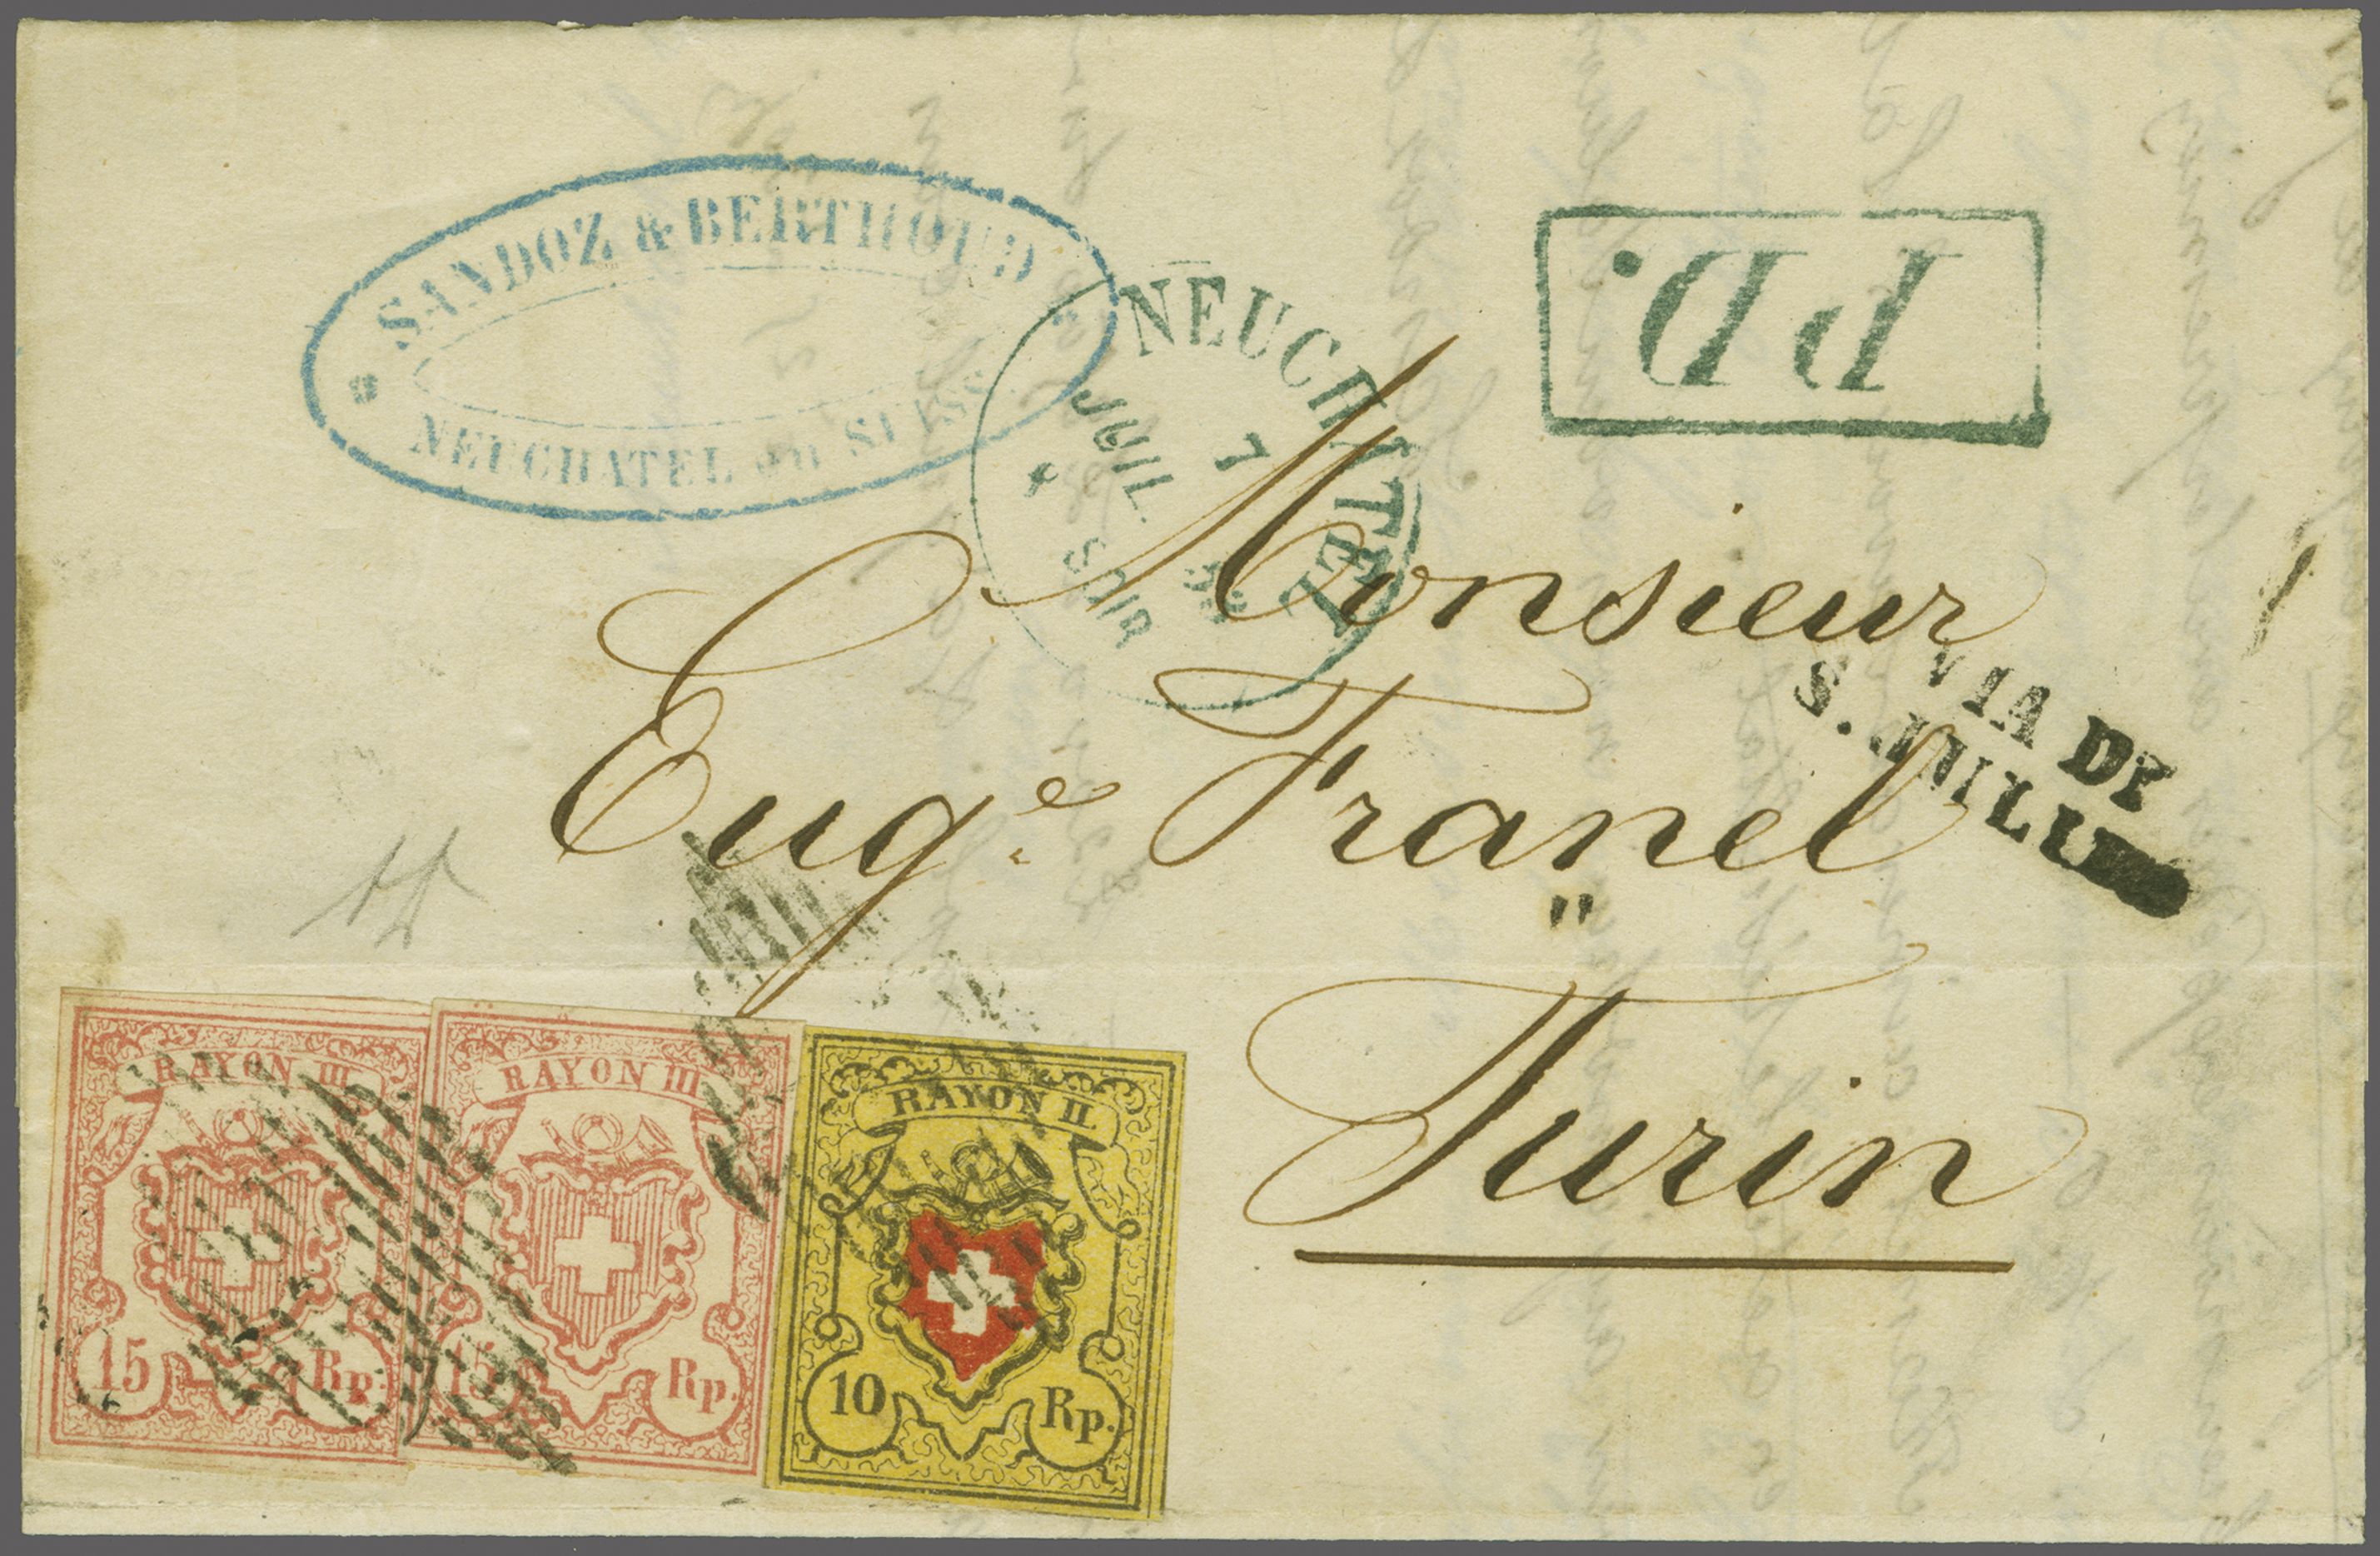 SANDOZ & BERTHOUD
NEUCHATEL en SUISSE
NEUCHATEL
7
JUIL.
SOIR
P.D.
Monsieur
VIA DI
Eug.e Franel
Turin
RAYON III
15 Rp.
RAYON III
15 Rp.
RAYON II
10 Rp.